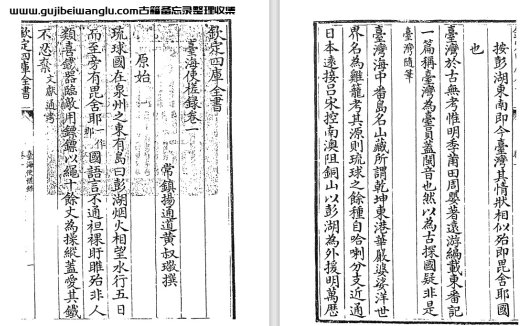 www.gujibeiwanglu.com古籍备忘录整理收集
欽定四庫全書
臺海使槎錄卷一
常鎮揚通道黃叔璥撰
原始
琉球國在泉州之東有島曰彭湖烟火相望水行五日
而至旁有毘舍耶一作那國語言不通袒裸盱睢殆非人
類喜鐵器臨敵用鏢鏢以繩十餘丈為操縱蓋愛其鐵
不忍棄文獻通考
欽定四庫全書
臺海使槎錄
按彭湖東南即今臺灣其情狀相似殆即毘舍耶國
也
臺灣於古無考惟明季莆田周嬰著遠游編載東番記
一篇稱臺灣為臺員蓋閩音也然以為古探國疑非是
臺灣隨筆
臺灣海中番島名山藏所謂乾坤東港華嚴婆娑洋世
界名為雞籠考其源則琉球之餘種自哈喇分支近通
日本遠接呂宋控南澳阻銅山以彭湖為外援明萬厯